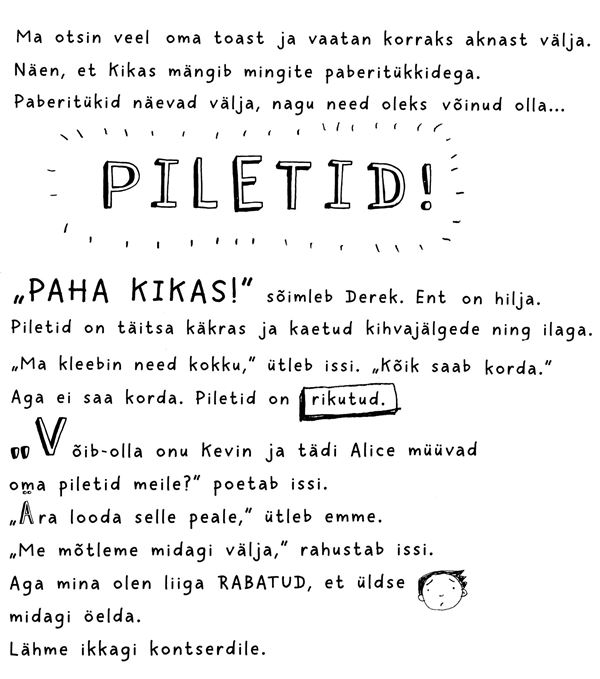 Ma otsin veel oma toast ja vaatan korraks aknast välja.
Näen, et Kikas mängib mingite paberitükkidega.
Paberitükid näevad välja, nagu need oleks võinud olla...
PILETID!
„PAHA KIKAS!“ sõimleb Derek. Ent on hilja.
Piletid on täitsa käkras ja kaetud kihvajälgede ning ilaga.
„Ma kleebin need kokku,“ ütleb issi. „Kõik saab korda.“
Aga ei saa korda. Piletid on rikutud.
„Võib-olla onu Kevin ja tädi Alice müüvad
oma piletid meile?“ poetab issi.
„Ära looda selle peale,“ ütleb emme.
„Me mõtleme midagi välja,“ rahustab issi.
Aga mina olen liiga RABATUD, et üldse
midagi öelda.
Lähme ikkagi kontserdile.